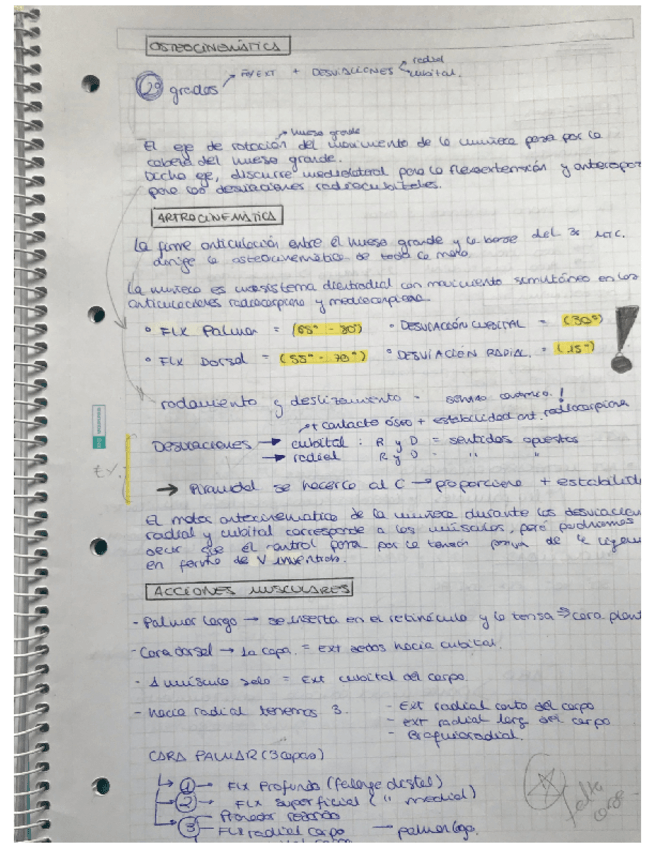 OSTEOCINEMÁTICA
2º grados → FLX/EXT + DESVIACIONES < radial
cubital.
→ hueso grande
El eje de rotación del movimiento de la muñeca pasa por la
cabeza del hueso grande.
Dicho eje, discurre mediolateral para la flexoextensión y anteropos
para las desviaciones radiocubitales.
ARTROCINEMÁTICA
La firme articulación entre el hueso grande y la base del 3º MTC.
dirige la osteocinemática de toda la mano.
La muñeca es un sistema diarticular con movimiento simultáneo en las
articulaciones radiocarpiana y mediocarpiana.
° FLX Palmar = (65° - 80°) ° DESVIACIÓN CUBITAL = (30°)
° FLX Dorsal = (55° - 70°) ° DESVIACIÓN RADIAL = (15°)
rodamiento y deslizamiento - sentido !
→ + contacto óseo + estabilidad art. radiocarpiana
DESVIACIONES → cubital : R y D = sentidos opuestos
→ radial R y D " "
→ Piramidal se acerca al C → proporciona + estabilida
El motor artrocinemático de la muñeca durante las desviacion
radial y cubital corresponde a los músculos, pero podríamos
decir que el control pasa por la tensión de
en forma de V invertida.
ACCIONES MUSCULARES
- Palmar largo → se inserta en el retináculo y lo tensa ⇒ cara plant
- Cara dorsal → 1a capa. = ext dedos hacia cubital.
- 1 músculo solo = Ext cubital del carpo.
- hacia radial tenemos 3. - Ext radial corto del carpo
- ext radial larg del carpo
- Braquioradial.
CARA PALMAR (3 capas)
① → FLX Profundo (falange distal)
② → FLX Superficial ( " medial)
③ Pronador redondo
FLX radial carpo → palmar largo.
falta